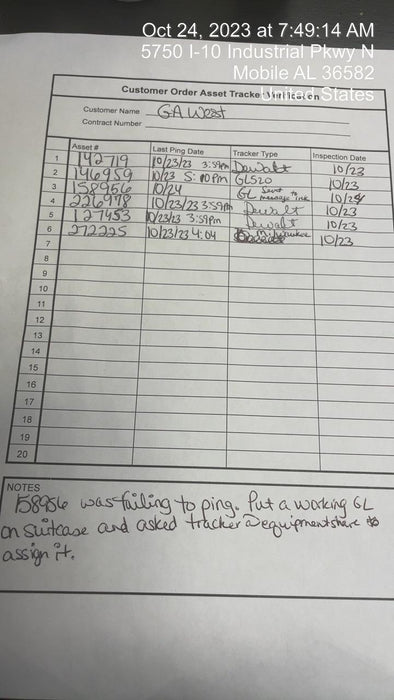 Oct 24, 2023 at 7:49:14 AM
5750 I-10 Industrial Pkwy N
Mobile AL 36582
United States
Customer Order Asset Tracker
Customer Name GA West
Contract Number
Asset # Last Ping Date Tracker Type Inspection Date
1 142719 10/23/23 3:59pm Dewalt 10/23
2 146959 10/23 5:10pm GL520 10/23
3 158956 10/24 GL 10/24
4 226978 10/23/23 3:59pm Dewalt 10/23
5 127453 10/23/23 3:59pm Dewalt 10/23
6 272225 10/23/23 4:04 Milwaukee 10/23
7
8
9
10
11
12
13
14
15
16
17
18
19
20
NOTES
158956 was failing to ping. Put a working GL
on suitcase and asked tracker@equipmentshare to
assign it.